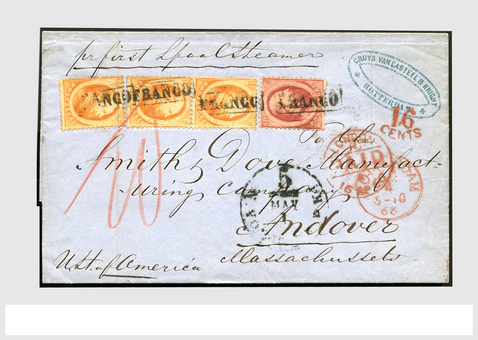 pr first Lpool Steamer
FRANCO
FRANCO
FRANCO
FRANCO
CRUYS, VAN CASTEEL & KNIGHT
ROTTERDAM
16
CENTS
To the
Smith & Dove Manufact-
uring company
5
MAY
Andover
Massachussets
U. St. of America
66